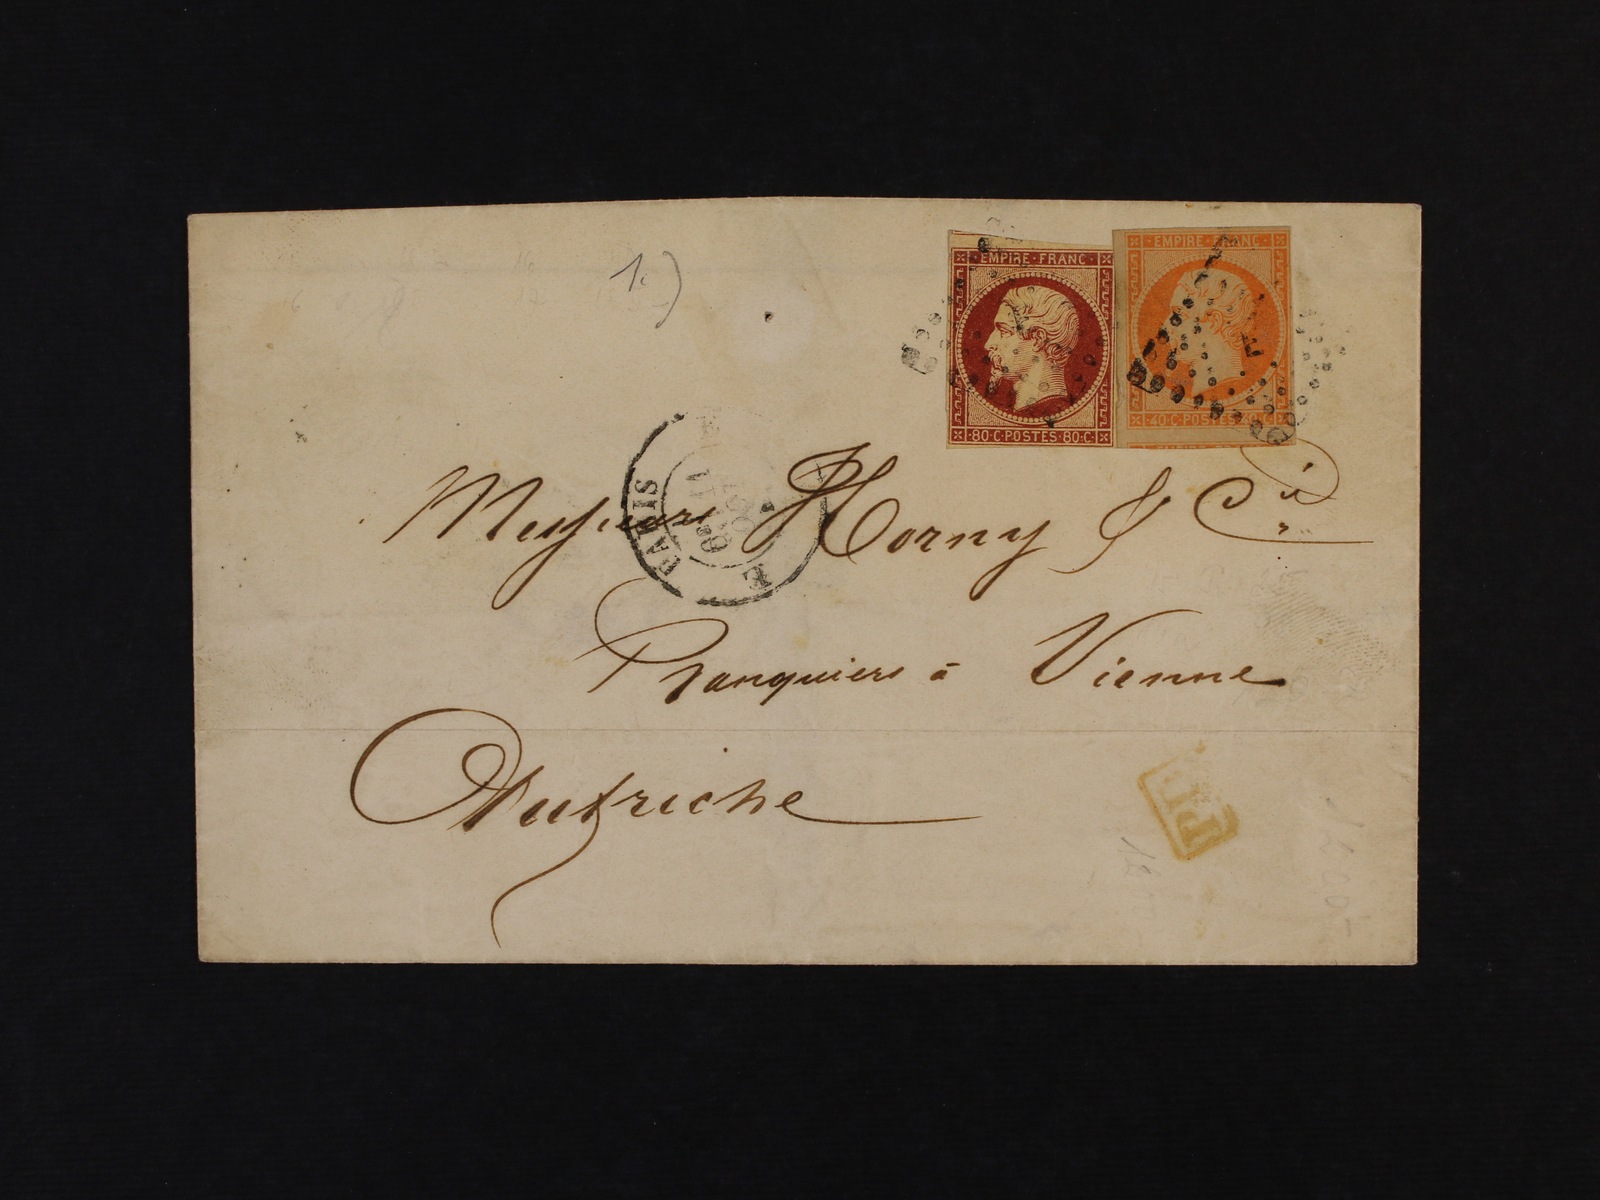 1.)
EMPIRE·FRANC
80·C·POSTES·80·C·
EMPIRE·FRANC
40·C·POSTES·40·C·
E
PARIS
E
Messieurs Horny & Cie
Banquiers à Vienne
Autriche
P.P.
1200-